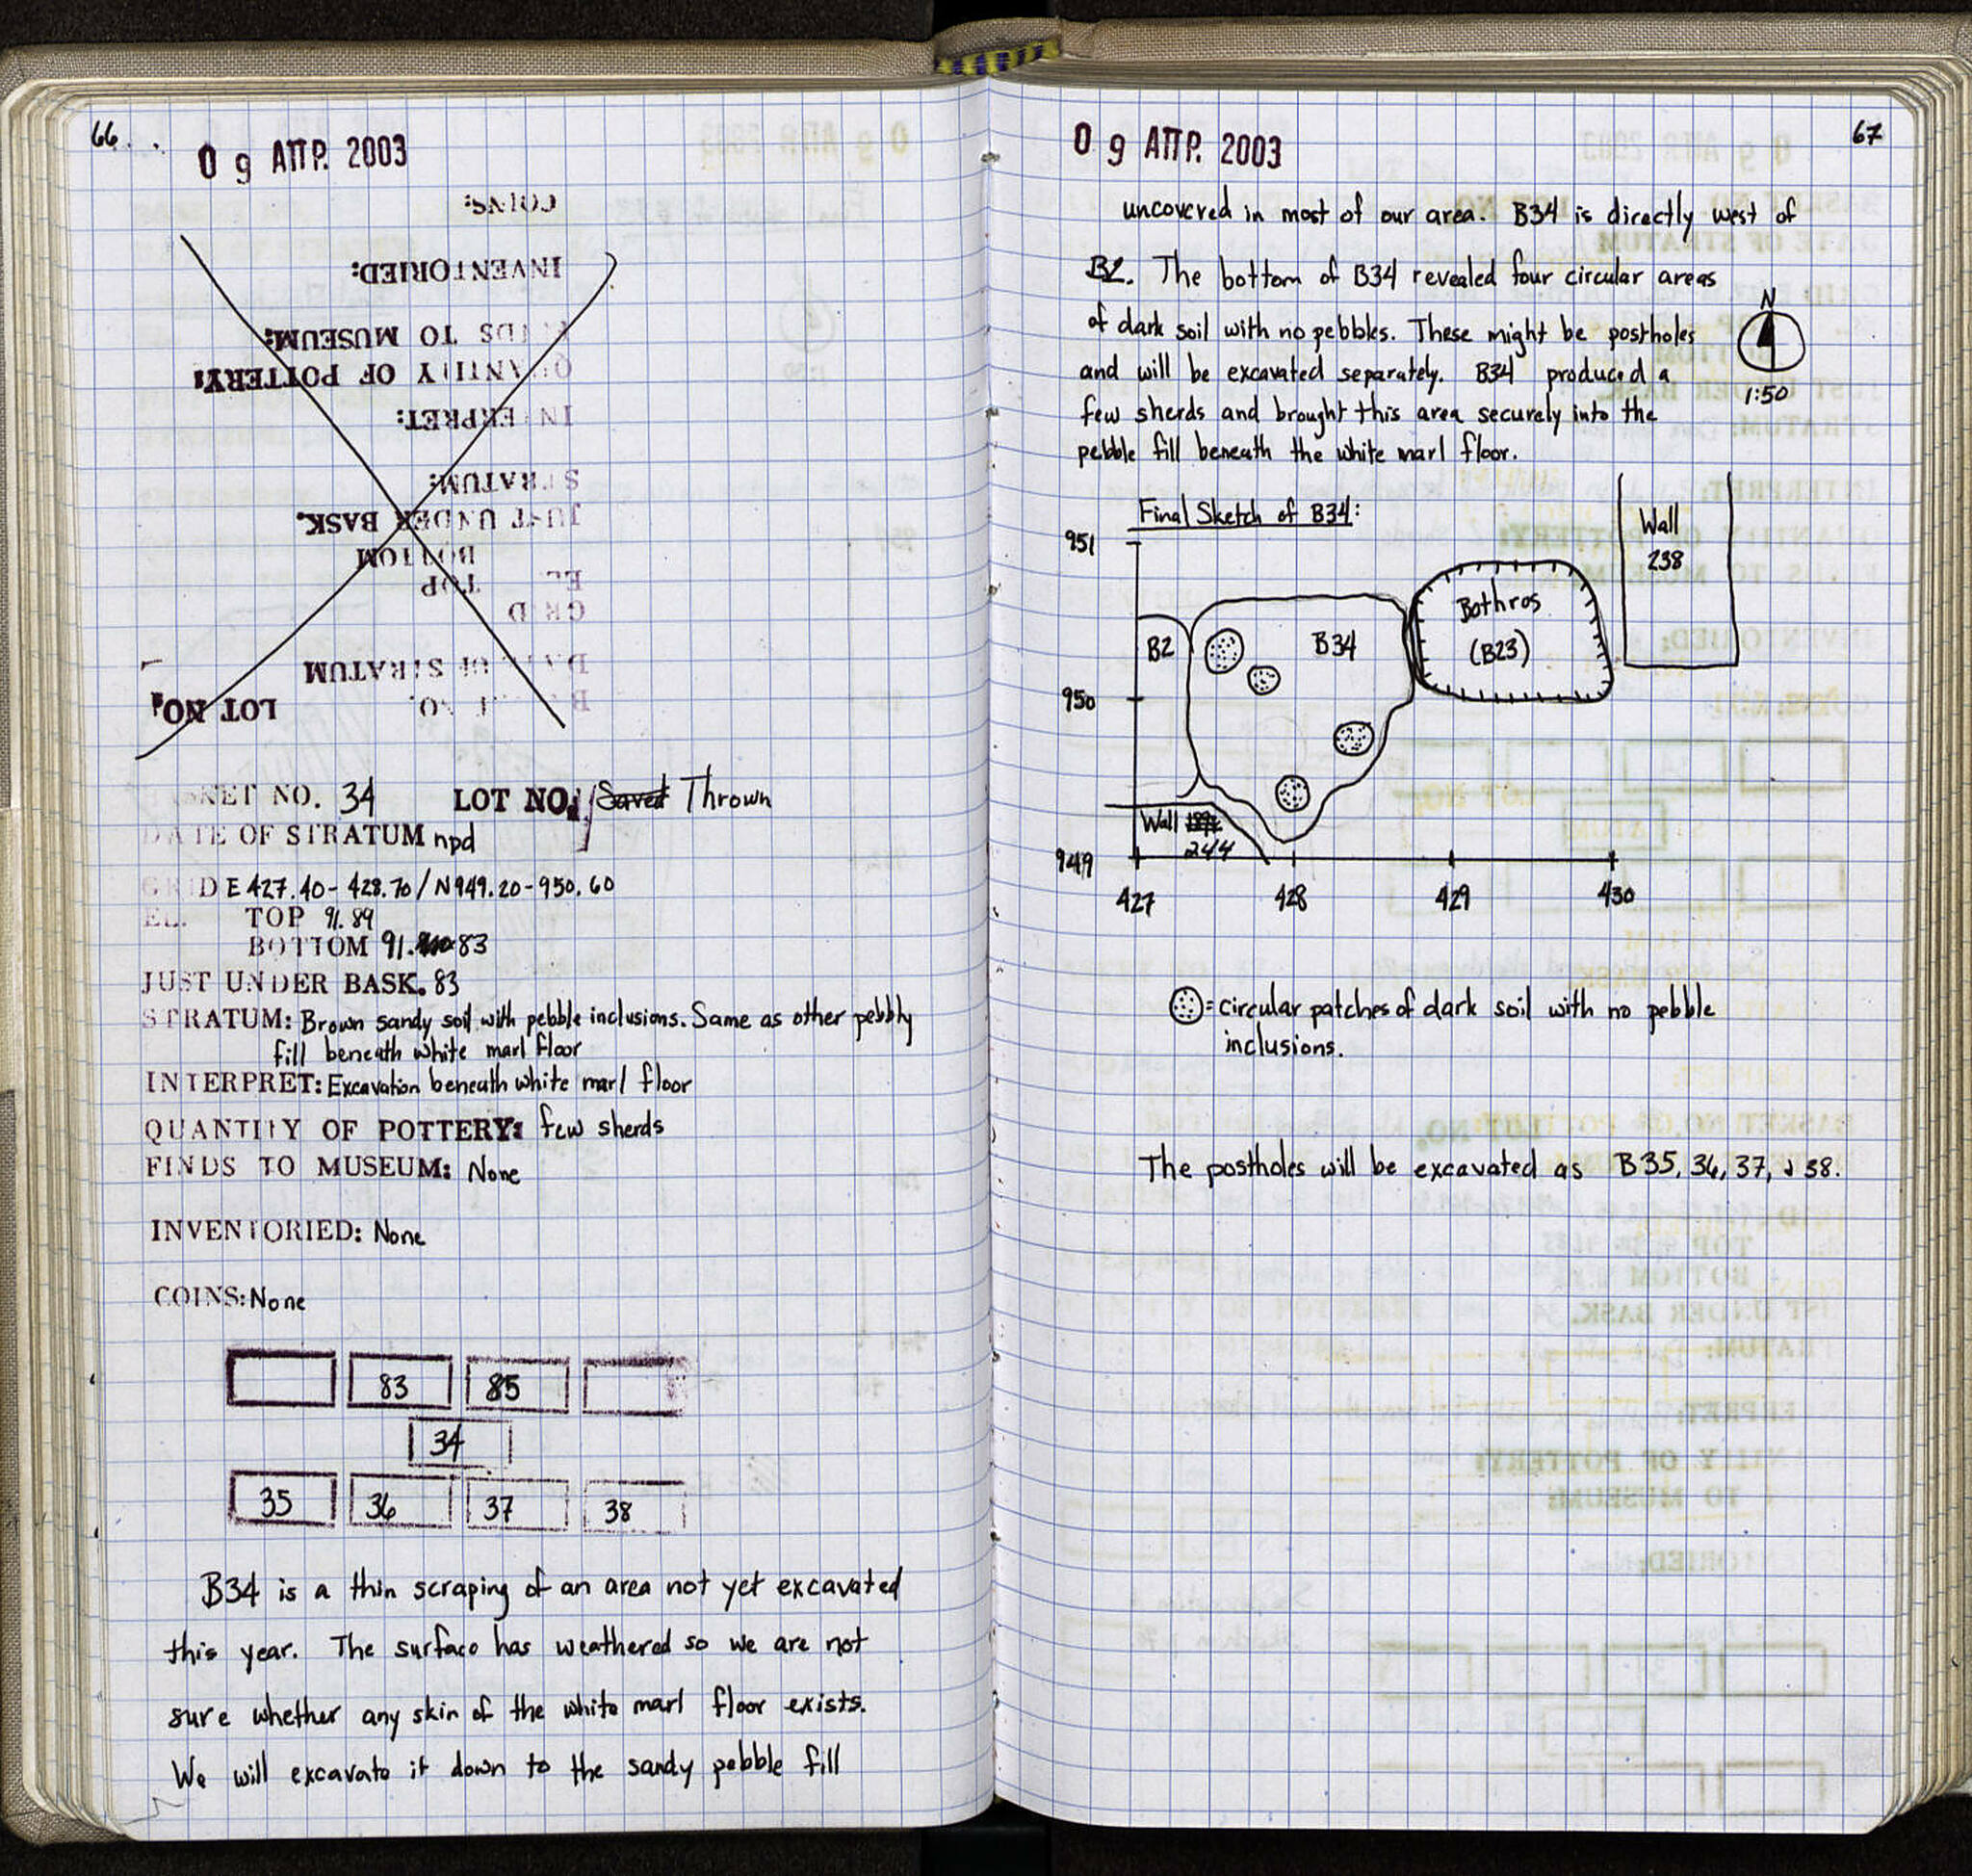 66.
09 ΑΠΡ. 2003
COINS:
INVENTORIED:
FINDS TO MUSEUM:
QUANTITY OF POTTERY:
INTERPRET:
STRATUM:
JUST UNDER BASK.
BOTTOM
EL. TOP
GRID
DATE OF STRATUM
BASKET NO. LOT NO.
BASKET NO. 34 LOT NO. Saved Thrown
DATE OF STRATUM npd
GRID E 427.40 - 428.70 / N 949.20 - 950.60
EL. TOP 91.89
BOTTOM 91.83
JUST UNDER BASK. 83
STRATUM: Brown sandy soil with pebble inclusions. Same as other pebbly
fill beneath white marl floor
INTERPRET: Excavation beneath white marl floor
QUANTITY OF POTTERY: few sherds
FINDS TO MUSEUM: None
INVENTORIED: None
COINS: None
83 85
34
35 36 37 38
B34 is a thin scraping of an area not yet excavated
this year. The surface has weathered so we are not
sure whether any skin of the white marl floor exists.
We will excavate it down to the sandy pebble fill
09 ΑΠΡ. 2003
67
uncovered in most of our area. B34 is directly west of
B2. The bottom of B34 revealed four circular areas
of dark soil with no pebbles. These might be postholes
and will be excavated separately. B34 produced a
few sherds and brought this area securely into the
pebble fill beneath the white marl floor.
N
1:50
Final Sketch of B34:
951
950
949
427 428 429 430
B2
B34
Bothros
(B23)
Wall
238
Wall
244
= circular patches of dark soil with no pebble
inclusions.
The postholes will be excavated as B35, 36, 37, & 38.